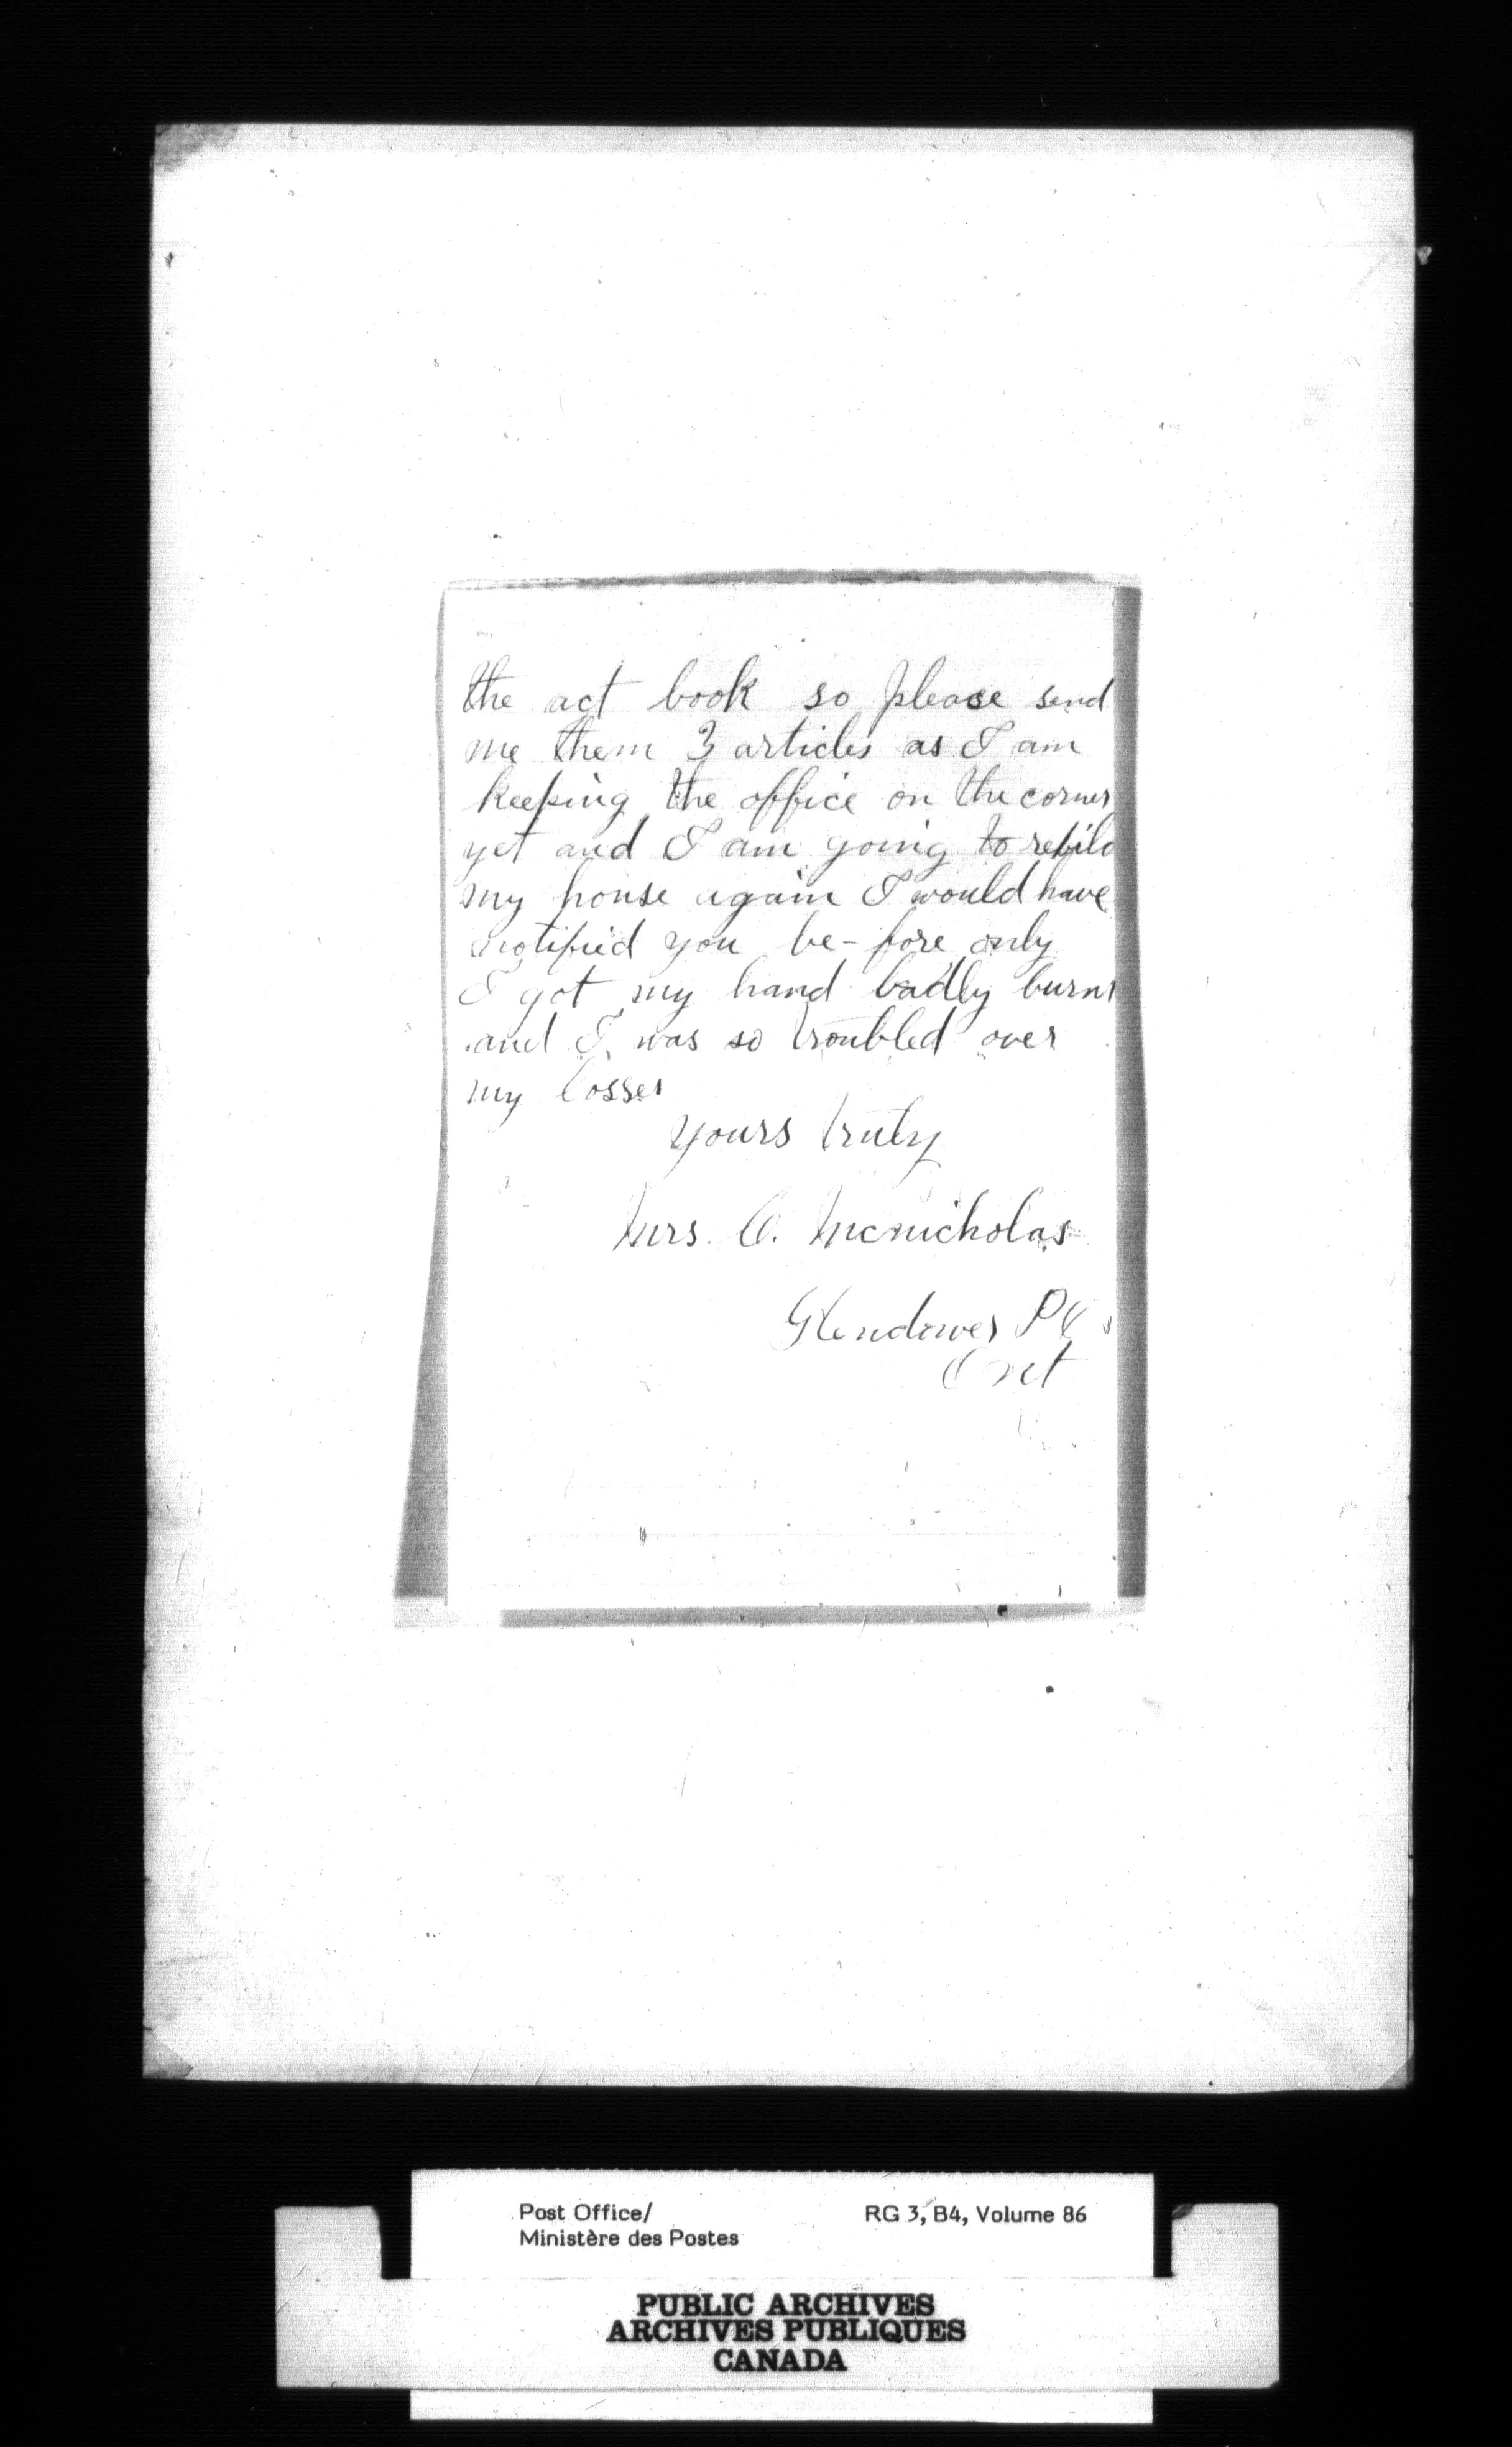 the act book so please send
me them 3 articles as I am
keeping the office on the corner
yet and I am going to rebild
my house again I would have
notified you be-fore only
I got my hand badly burnt
and I was so troubled over
my losses
yours truly
Mrs. C. Mcnicholas
Glendower P.O.
Ont
Post Office/ RG 3, B4, Volume 86
Ministère des Postes
PUBLIC ARCHIVES
ARCHIVES PUBLIQUES
CANADA